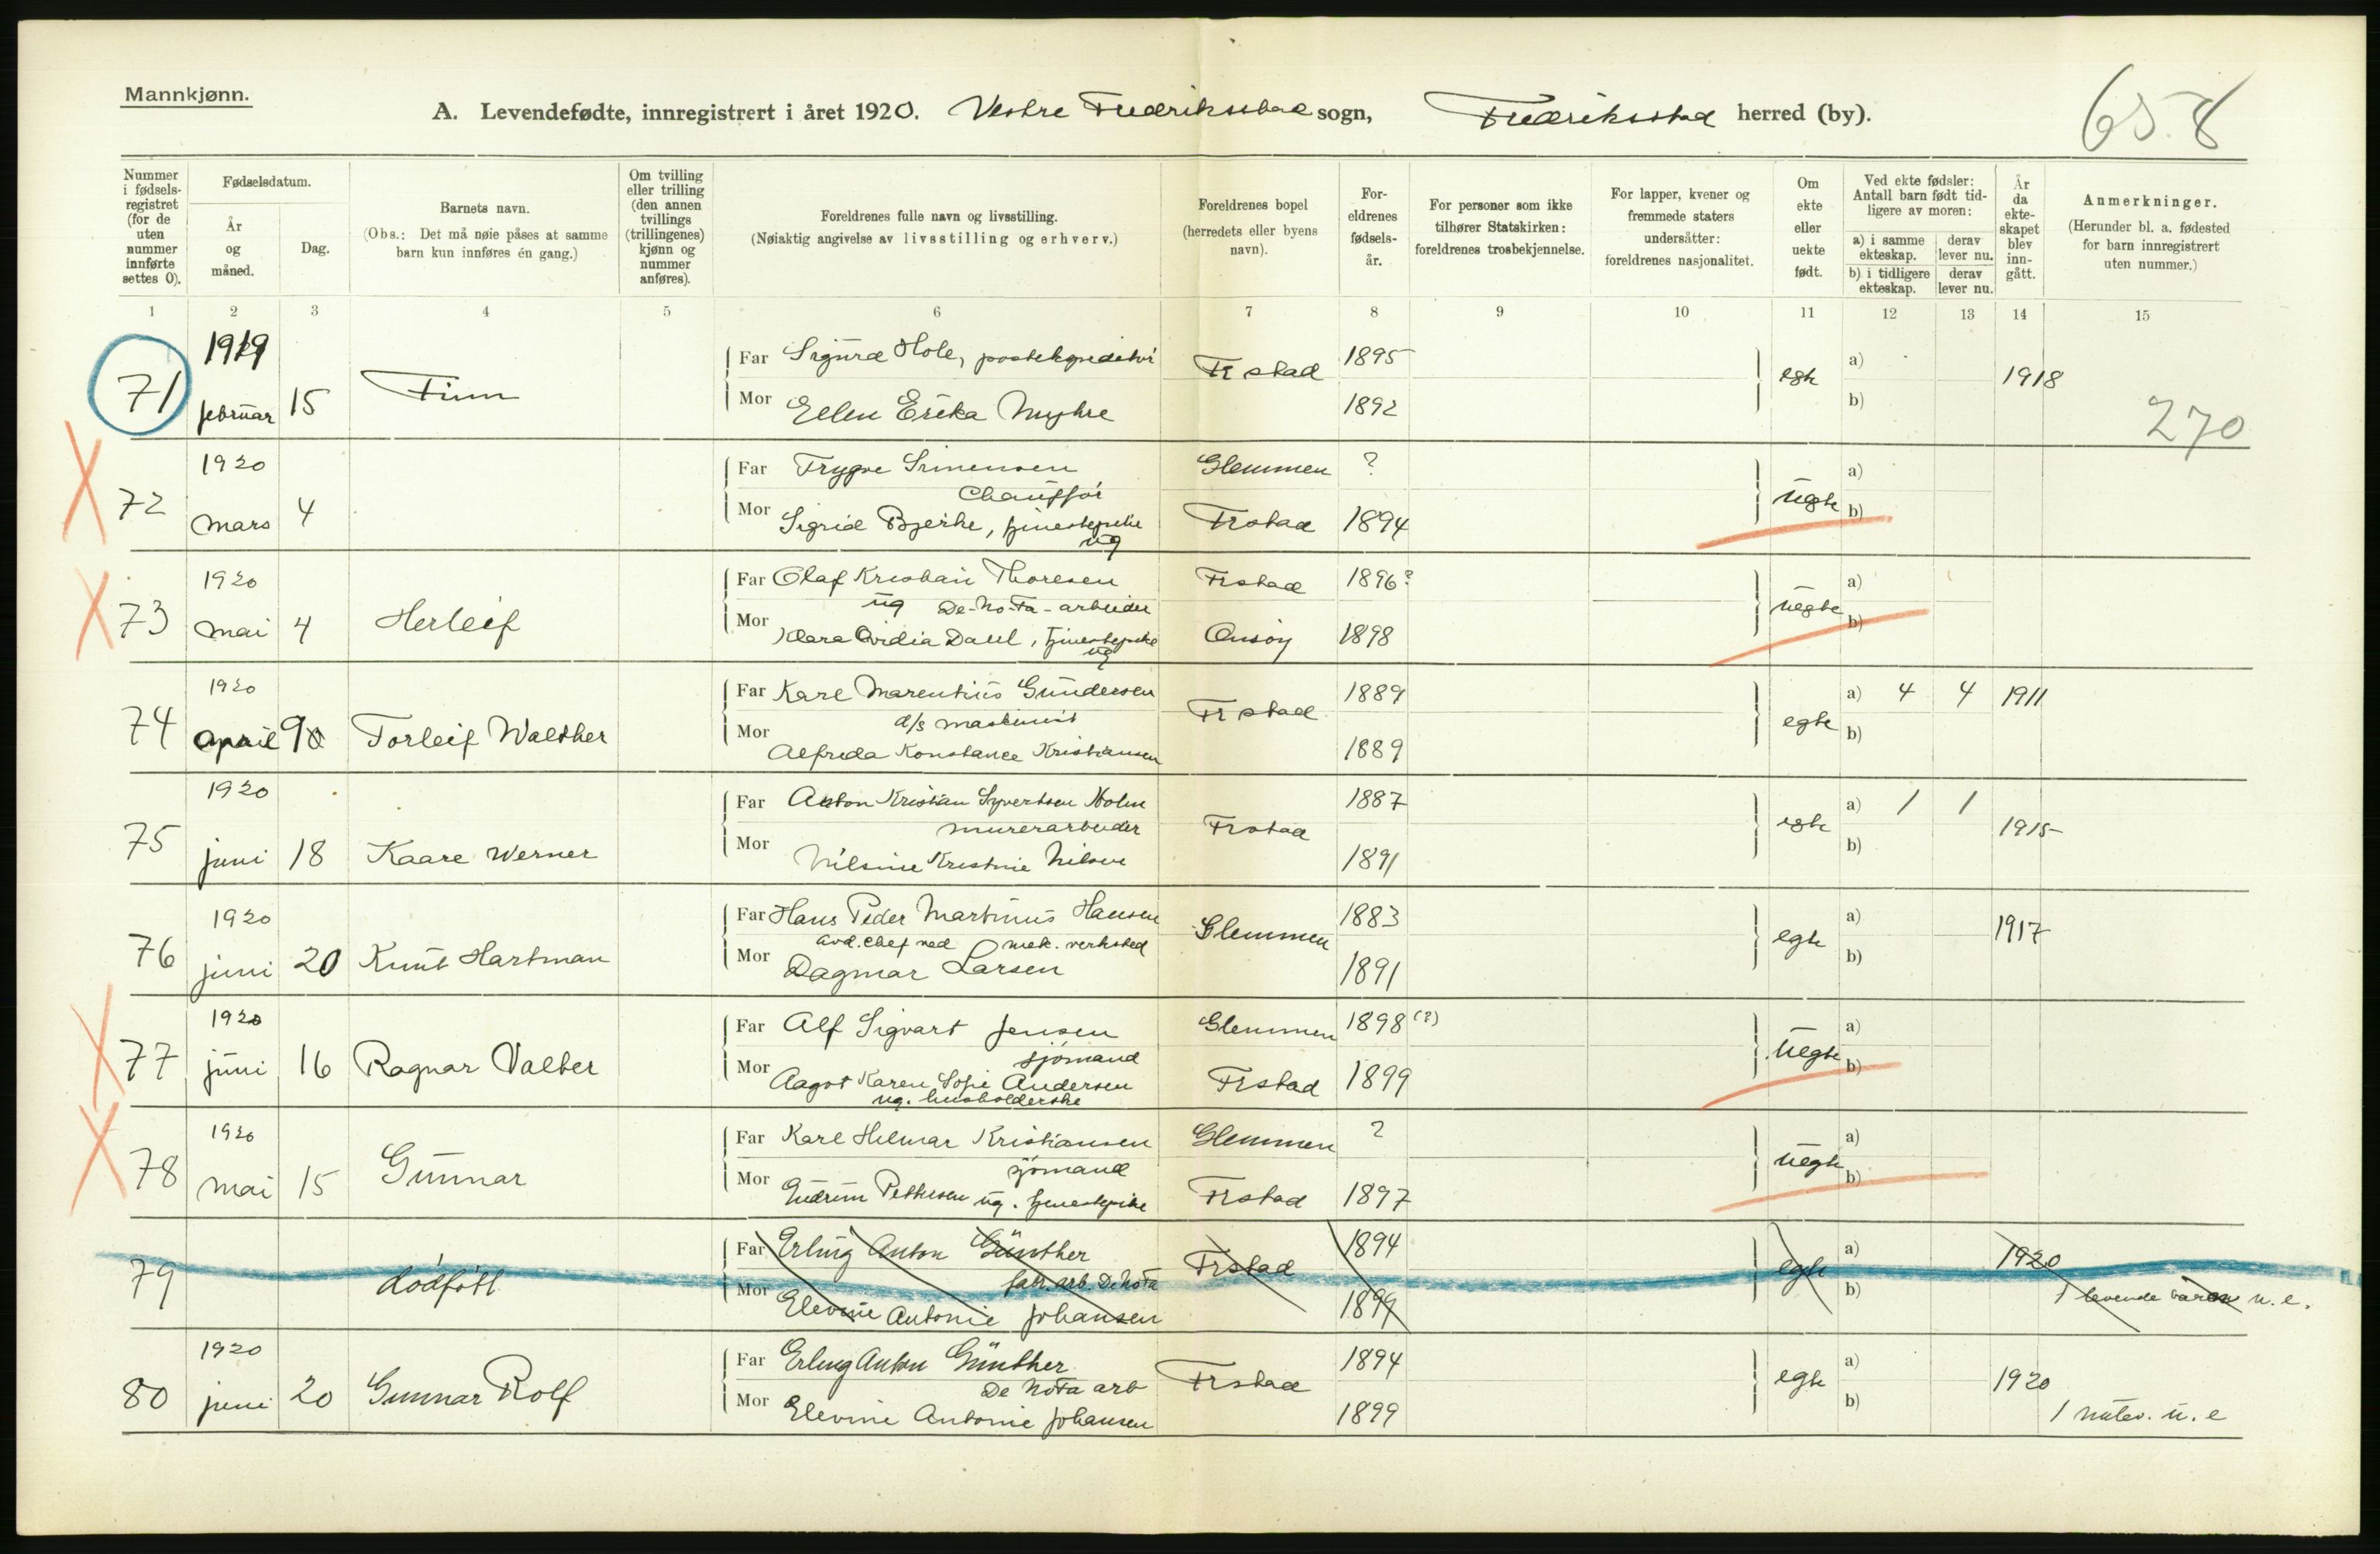 Mannkjønn.
A. Levendefødte, innregistrert i året 1920. Vestre Fredriksstad sogn, Fredriksstad herred (by).
658
Nummer i fødsels-registret (for de uten nummer innførte settes 0).
Fødselsdatum.
År og måned.
Dag.
Barnets navn.
(Obs.: Det må nøie påses at samme barn kun innføres én gang.)
Om tvilling eller trilling (den annen tvillings (trillingenes) kjønn og nummer anføres).
Foreldrenes fulle navn og livsstilling.
(Nøiaktig angivelse av livsstilling og erhverv.)
Foreldrenes bopel (herredets eller byens navn).
For-eldrenes fødsels-år.
For personer som ikke tilhører Statskirken: foreldrenes trosbekjennelse.
For lapper, kvener og fremmede staters undersåtter: foreldrenes nasjonalitet.
Om ekte eller uekte født.
Ved ekte fødsler: Antall barn født tid-ligere av moren:
a) i samme ekteskap.
derav lever nu.
b) i tidligere ekteskap.
derav lever nu.
År da ekte-skapet blev inn-gått.
Anmerkninger.
(Herunder bl. a. fødested for barn innregistrert uten nummer.)
1 2 3 4 5 6 7 8 9 10 11 12 13 14 15
1919
71 februar 15 Finn
Far Sigurd Hole, postekspeditør Frstad 1895 egte a) 1918
Mor Ellen Erika Myhre 1892 b)
270
1920
72 mars 4
Far Trygve Simensen Glemmen ? uegte a)
Chaufför
Mor Sigrid Bjerke, tjenestepike Frstad 1894 b)
ug
1920
73 mai 4 Herleif
Far Olaf Kristian Thoresen Frstad 1896? uegte a)
ug De-No-Fa-arbeider
Mor Klara Ovidia Dahl, tjenestepike Onsøy 1898 b)
ug
1920
74 april 9 Torleif Walther
Far Karl Marentius Gundersen Frstad 1889 egte a) 4 4 1911
d/s maskinist
Mor Alfreda Konstance Kristiansen 1889 b)
1920
75 juni 18 Kaare Werner
Far Anton Kristian Syvertsen Holm Frstad 1887 egte a) 1 1 1915
murerarbeider
Mor Nilsine Kristine Nilsen 1891 b)
1920
76 juni 20 Knut Hartman
Far Hans Peder Martinus Hansen Glemmen 1883 egte a) 1917
avd. chef ved mek. verksted
Mor Dagmar Larsen 1891 b)
1920
77 juni 16 Ragnar Valter
Far Alf Sigvart Jensen Glemmen 1898 (?) uegte a)
sjömand
Mor Aagot Karen Sofie Andersen Frstad 1899 b)
ug. husholderske
1920
78 mai 15 Gunnar
Far Karl Hilmar Kristiansen Glemmen ? uegte a)
sjömand
Mor Gudrun Pettersen ug. tjenestepike Frstad 1897 b)
79 dödfött
Far Erling Anton Günther Frstad 1894 egte a) 1920
fabr. arb. De No Fa
Mor Elevine Antonie Johansen 1899 b) 1 levende barn u. e.
1920
80 juni 20 Gunnar Rolf
Far Erling Anton Günther Frstad 1894 egte a) 1920
De NoFa arb
Mor Elevine Antonie Johansen 1899 b) 1 u. e